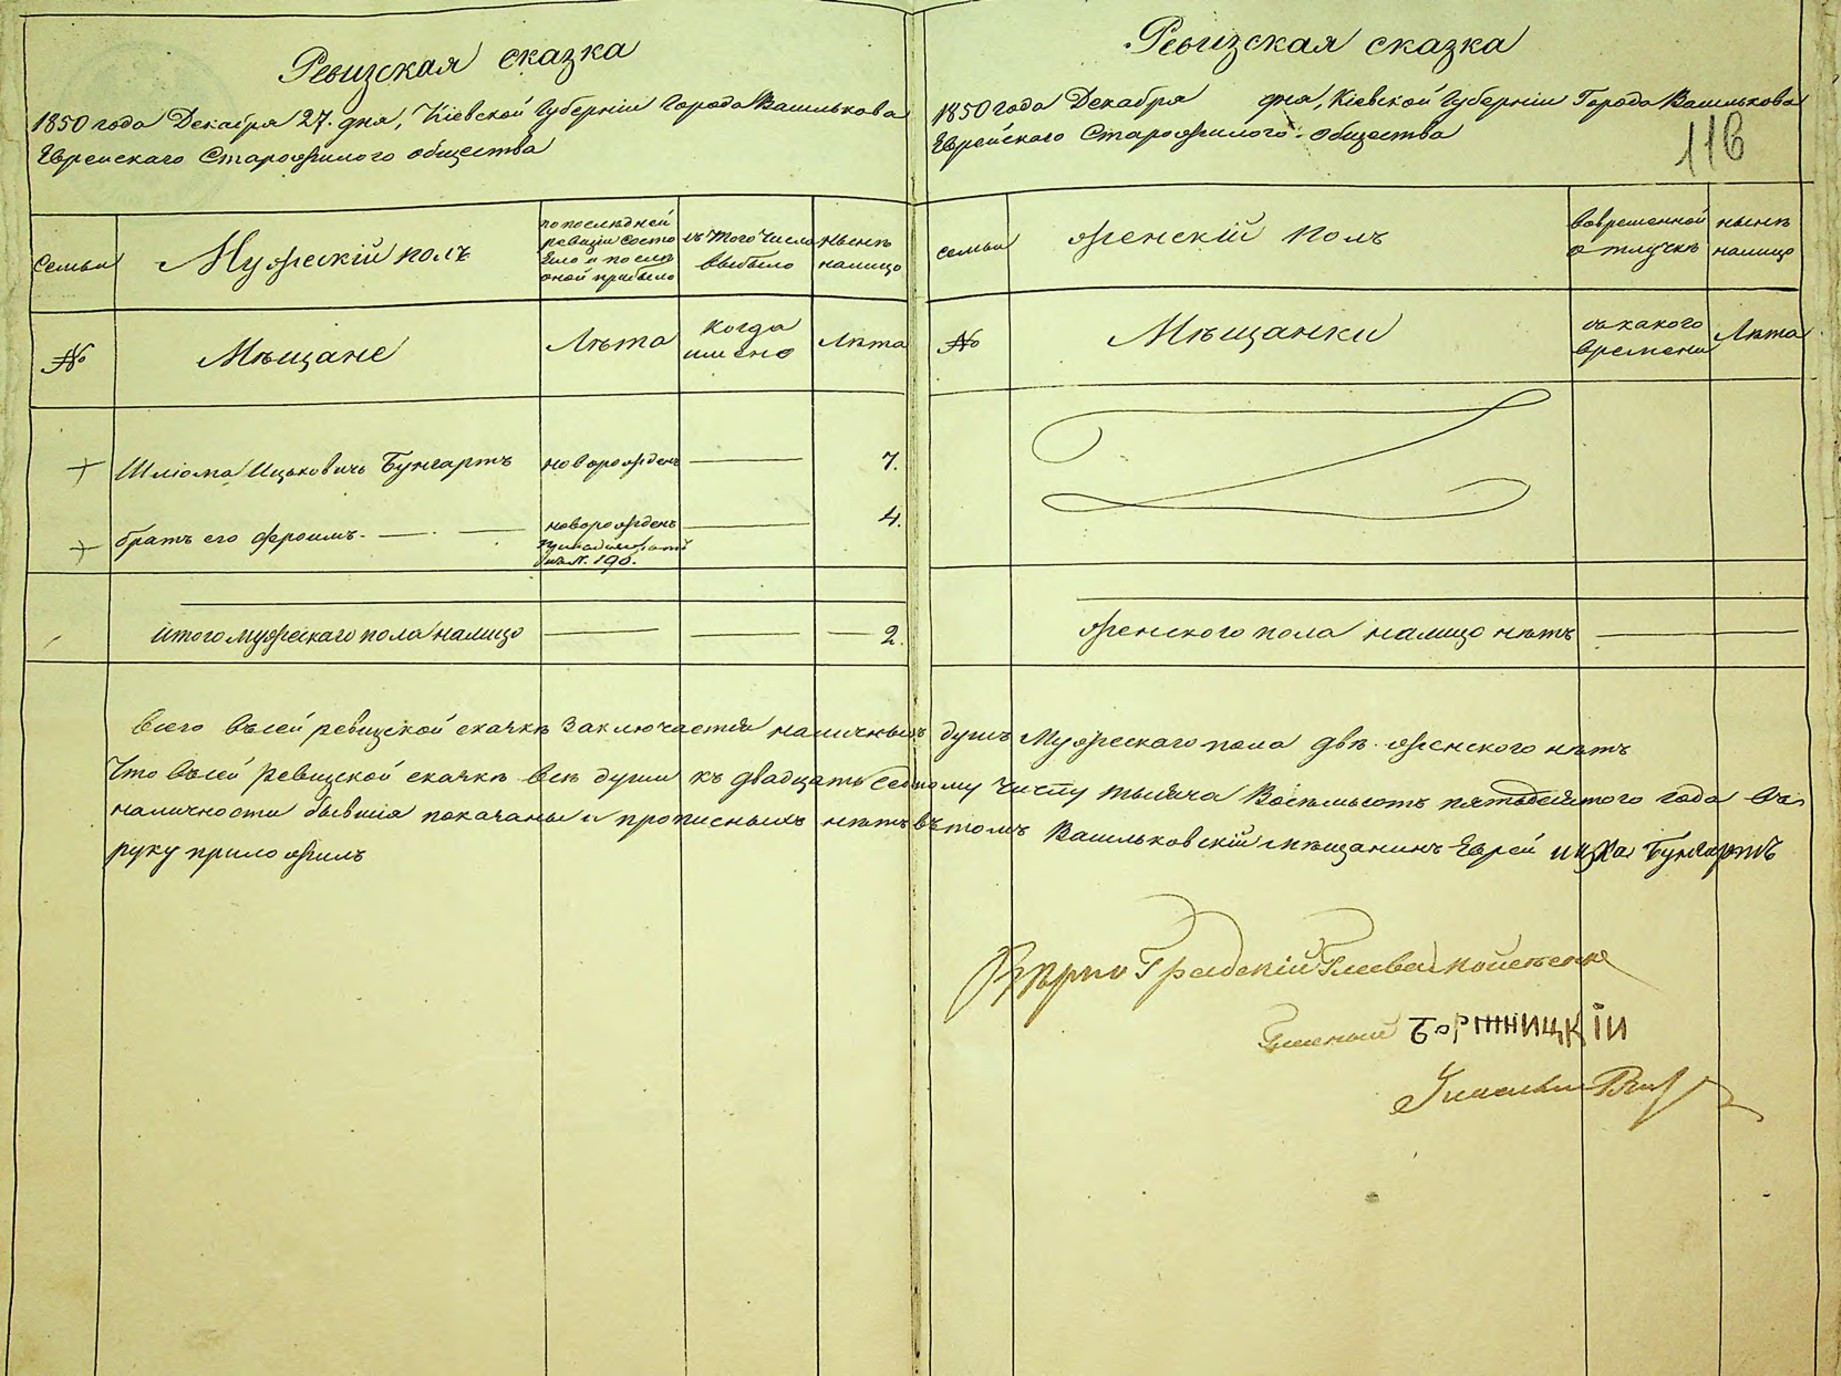 Ревизская сказка
1850 года Декабря 27. дня, Кіевской Губерніи Города Василькова
Еврейскаго Старожилого общества
Семьи
Мужескій полъ
по последней
ревизіи состо
яло и после
оной прибыло
изъ того числа
выбыло
ныне
налицо
№
Мѣщане
Лѣта
когда
имено
Лѣта
Шліома Ицьковичь Бунгартъ
новорожденъ
7.
братъ его Фроимъ
новорожденъ
№. 190.
4.
итого мужескаго пола налицо
2.
Ревизская сказка
1850 года Декабря дня, Кіевской Губерніи Города Василькова
Еврейскаго Старожилого общества
116
семьи
женскій полъ
вовременной
отлучкѣ
нынѣ
налицо
№
Мѣщанки
съ какого
времени
Лѣта
женского пола налицо нѣтъ
Всего въ сей ревизской сказкѣ заключается наличныхъ душъ Мужескаго пола двѣ женского нѣтъ
Что въ сей ревизской сказкѣ всѣ души къ двадцать седьмому числу тысяча восемьсотъ пятьдесятого года въ
наличности бывшія показаны и прописныхъ нѣтъ въ томъ Васильковскій мѣщанинъ Еврей Бунгартъ
руку приложилъ
Вѣрно Градскій Глава
Гласный